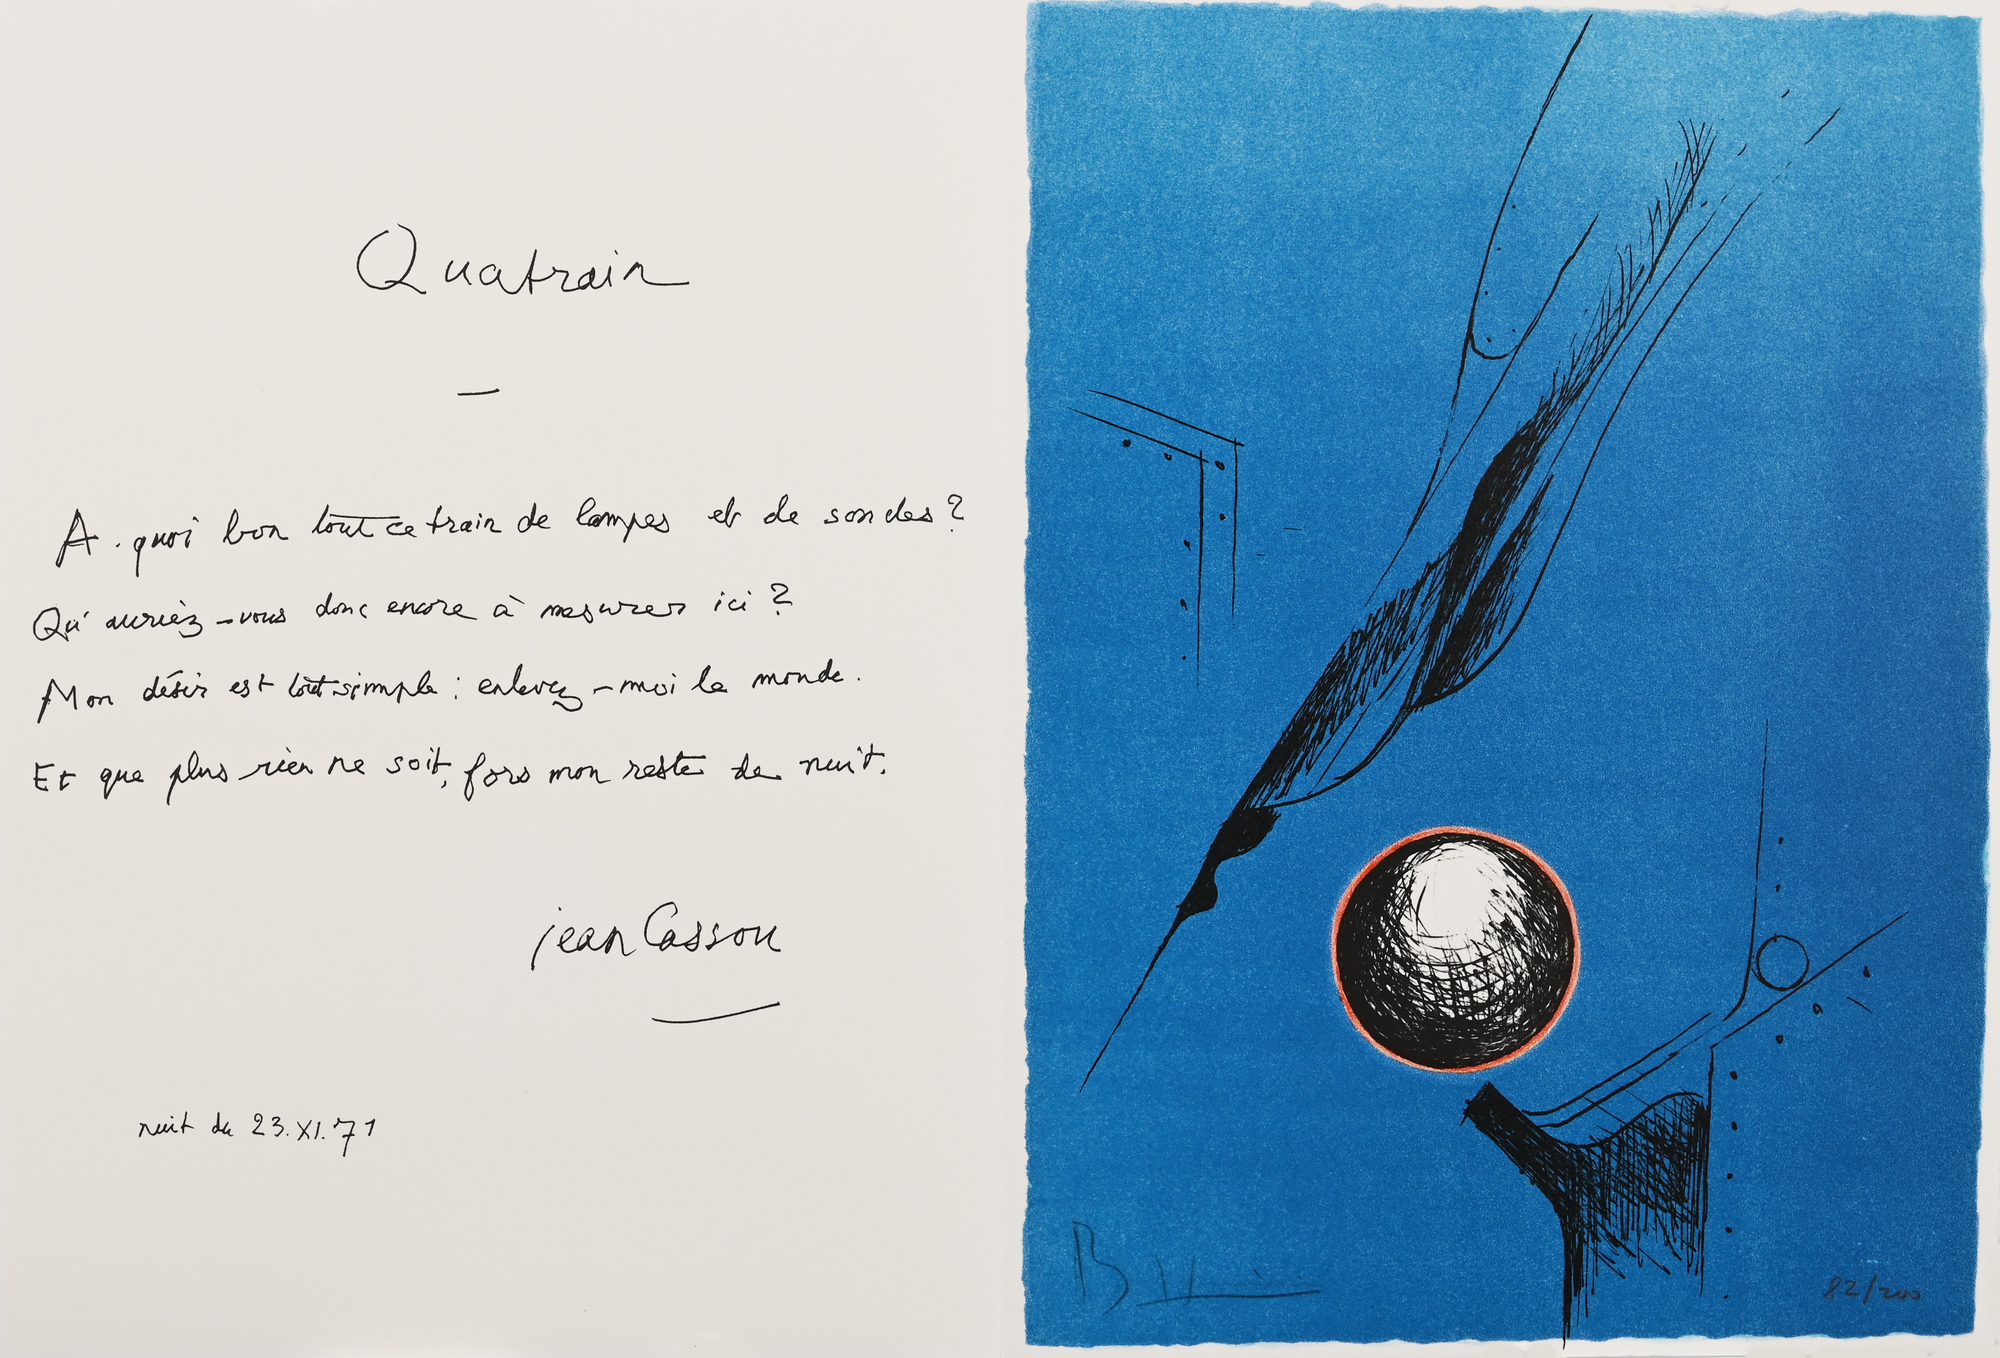 Quatrain
—
A quoi bon tout ce train de lampes et de sondes ?
Qu'auriez-vous donc encore à mesurer ici ?
Mon désir est tout simple : enlevez-moi le monde.
Et que plus rien ne soit, fors mon reste de nuit.
jean Cassou
nuit du 23.XI.71
82/200